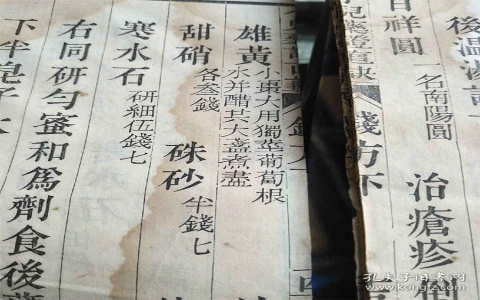 後温湯
百祥圓 一名南陽圓
治瘡疹
兒藥證直訣 錢方下
雄黃 小棗大用獨莖萄蔔根
水并醋共大盞煮盡
甜硝 各叁錢 硃砂 半錢匕
寒水石 研細伍錢匕
右同研勻蜜和爲劑食後
下半皂子大
孔夫子旧书网
www.kongfz.com